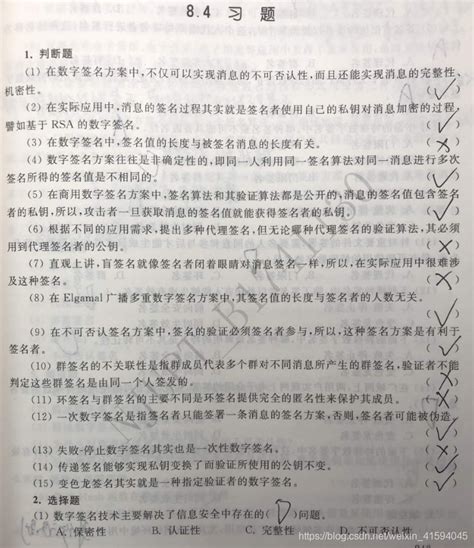 8.4 习 题
1. 判断题
(1) 在数字签名方案中,不仅可以实现消息的不可否认性,而且还能实现消息的完整性、
机密性。 (✓)
(2) 在实际应用中,消息的签名过程其实就是签名者使用自己的私钥对消息加密的过程,
譬如基于 RSA 的数字签名。 (✓)
(3) 在数字签名中,签名值的长度与被签名消息的长度有关。 (×)
(4) 数字签名方案往往是非确定性的,即同一人利用同一签名算法对同一消息进行多次
签名所得的签名值是不相同的。 (✓)
(5) 在商用数字签名方案中,签名算法和其验证算法都是公开的,消息的签名值包含签名
者的私钥,所以,攻击者一旦获取消息的签名值就能获得签名者的私钥。 (✓)
(6) 根据不同的应用需求,提出多种代理签名,但无论哪种代理签名的验证算法,其必须
用到代理签名者的公钥。 (×)
(7) 直观上讲,盲签名就像签名者闭着眼睛对消息签名一样,所以,在实际应用中很难涉
及这种签名。 (×)
(8) 在 Elgamal 广播多重数字签名方案中,其签名值的长度与签名者的人数无关。
(✓)
(9) 在不可否认签名方案中,签名的验证必须签名者参与,所以,这种签名方案是有利于
签名者。 (✓)
(10) 群签名的不关联性是指群成员代表多个群对不同消息所产生的群签名,验证者不能
判定这些群签名是由同一个人签发的。 (×)
(11) 环签名与群签名的主要不同是环签名提供完全的匿名性来保护其成员。 (✓)
(12) 一次数字签名是指签名者只能签署一条消息的签名方案,否则,签名者可能被伪造。
(✓)
(13) 失败-停止数字签名其实也是一次性数字签名。 (✓)
(14) 传递签名能够实现私钥变换了而验证所使用的公钥不变。 (✓)
(15) 变色龙签名其实就是一种指定验证者的数字签名。 (✓)
2. 选择题
(1) 数字签名技术主要解决了信息安全中存在的( D )问题。
A. 保密性 B. 认证性 C. 完整性 D. 不可否认性
https://blog.csdn.net/weixin_41594045